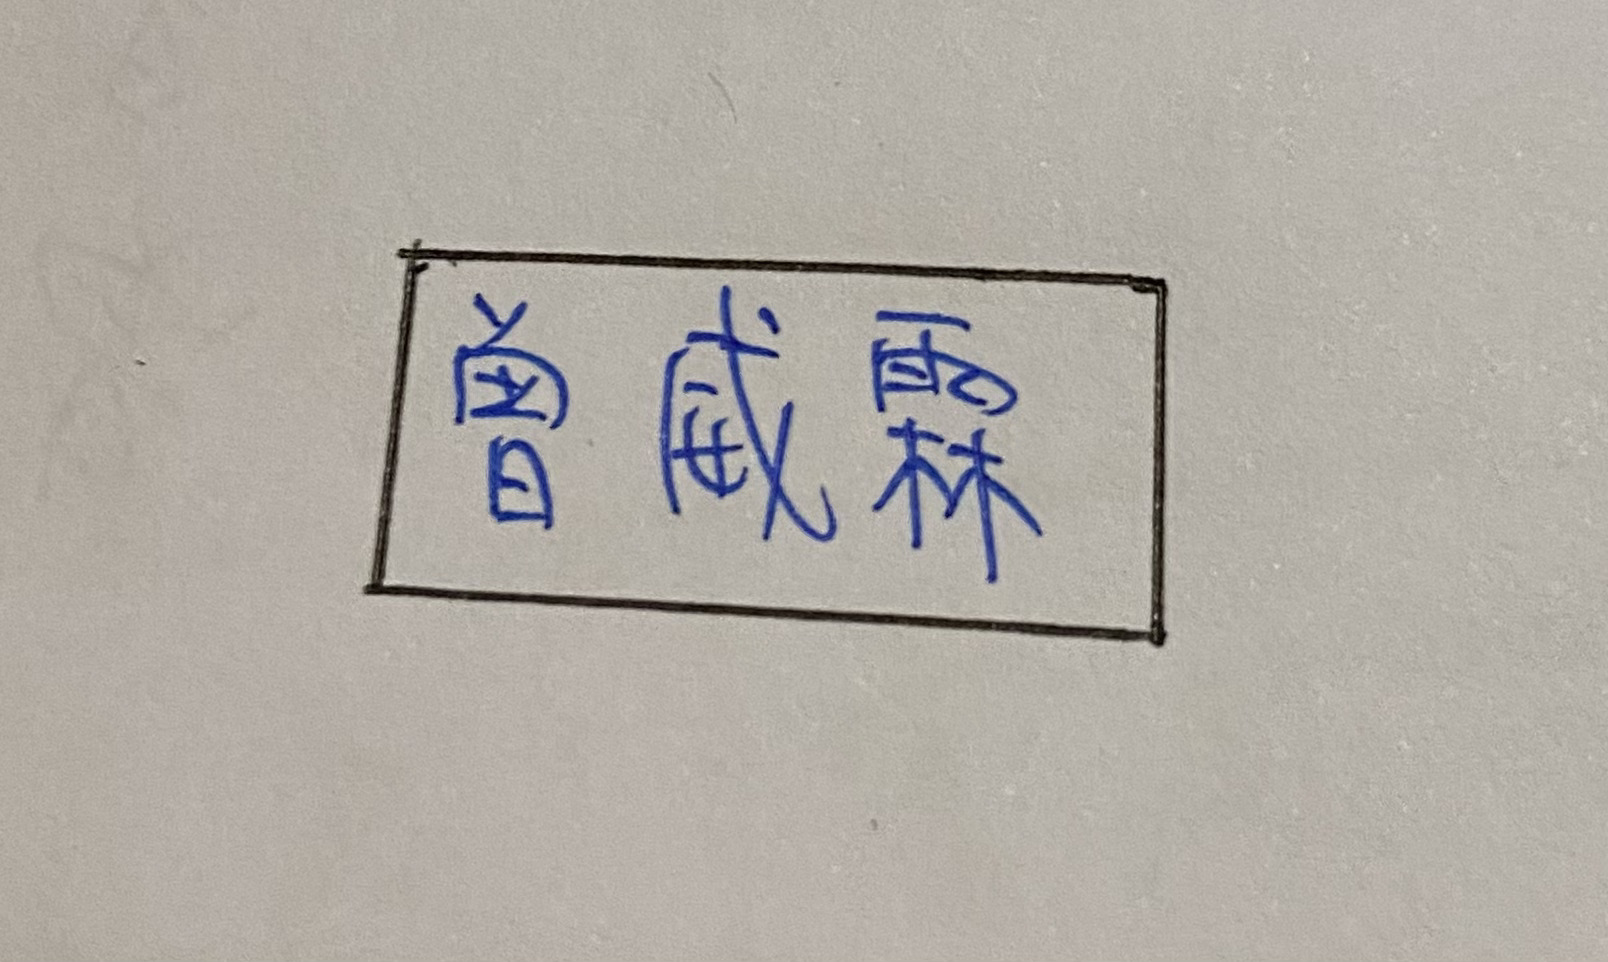 曾威霖